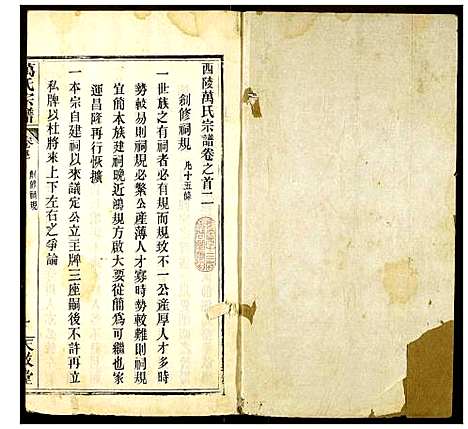 西陵萬氏宗譜卷之首二
創修祠規 凡十五條
一世族之有祠者必有規而規攷不一公産厚人才多時
勢較易則祠規必繁公産薄人才寡時勢較難則祠規
宜簡本族建祠晚近鴻規方啟大要從簡為可繼也家
運昌隆再行恢擴
一本宗自建祠以來議定公立主牌三座嗣後不許再立
私牌以杜將來上下左右之爭論
萬氏宗譜
創修祠規